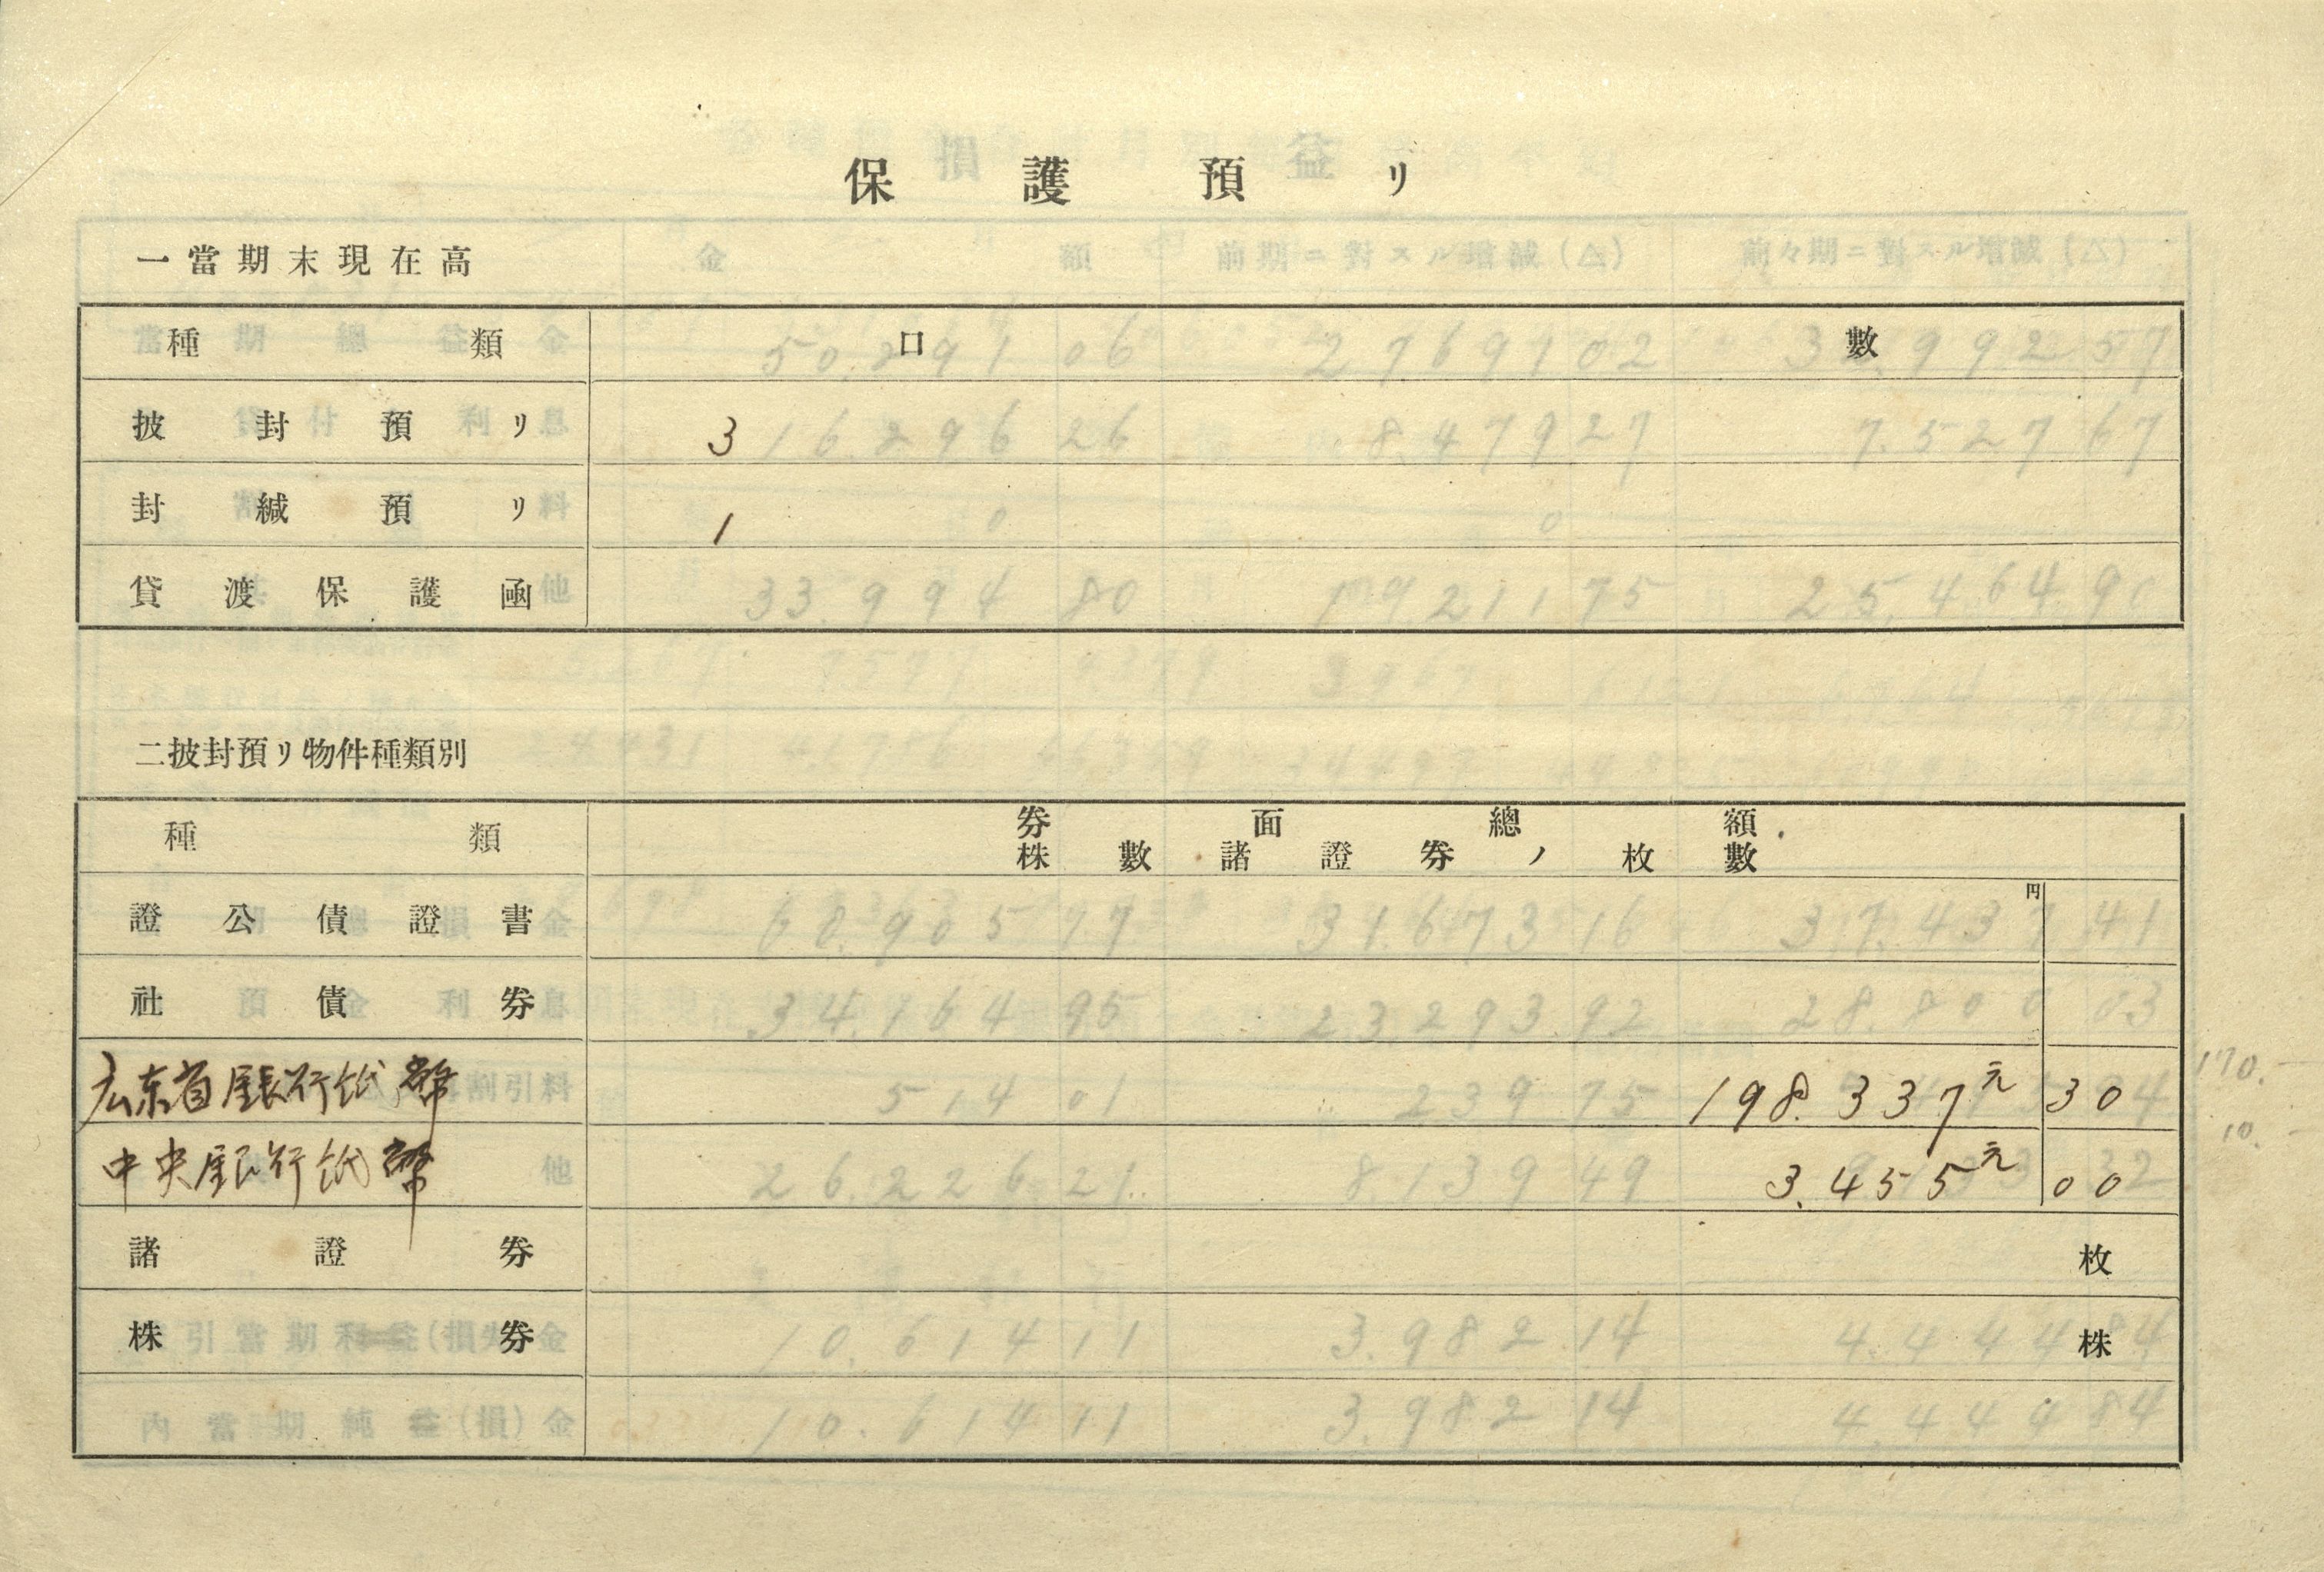 保護預リ
一當期末現在高
種類 口數
披封預リ 3
封緘預リ 1
貸渡保護凾
二披封預リ物件種類別
種類 券面總額
株數諸證券ノ枚數
證公債證書 円
社債券
広东省銀行紙幣 198.337元30
中央銀行紙幣 3.455元00
諸證券 枚
株券 株
170.-
10.-